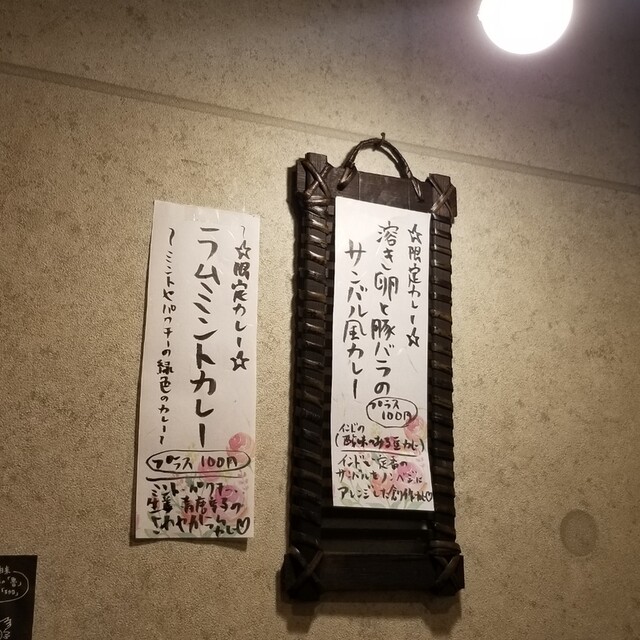 ☆限定カレー☆
溶き卵と豚バラの
サンバル風カレー
プラス
100円
インドの
(酸味のある豆カレー)
インドで定番の
サンバルをノンベジに
アレンジした創作カレー♡
〜☆限定カレー☆
ラムミントカレー
〜ミントやパクチーの緑色のカレー〜
プラス 100円
ミント・パクチー・
生姜・青唐辛子の
さわやかグリーンカレー♡